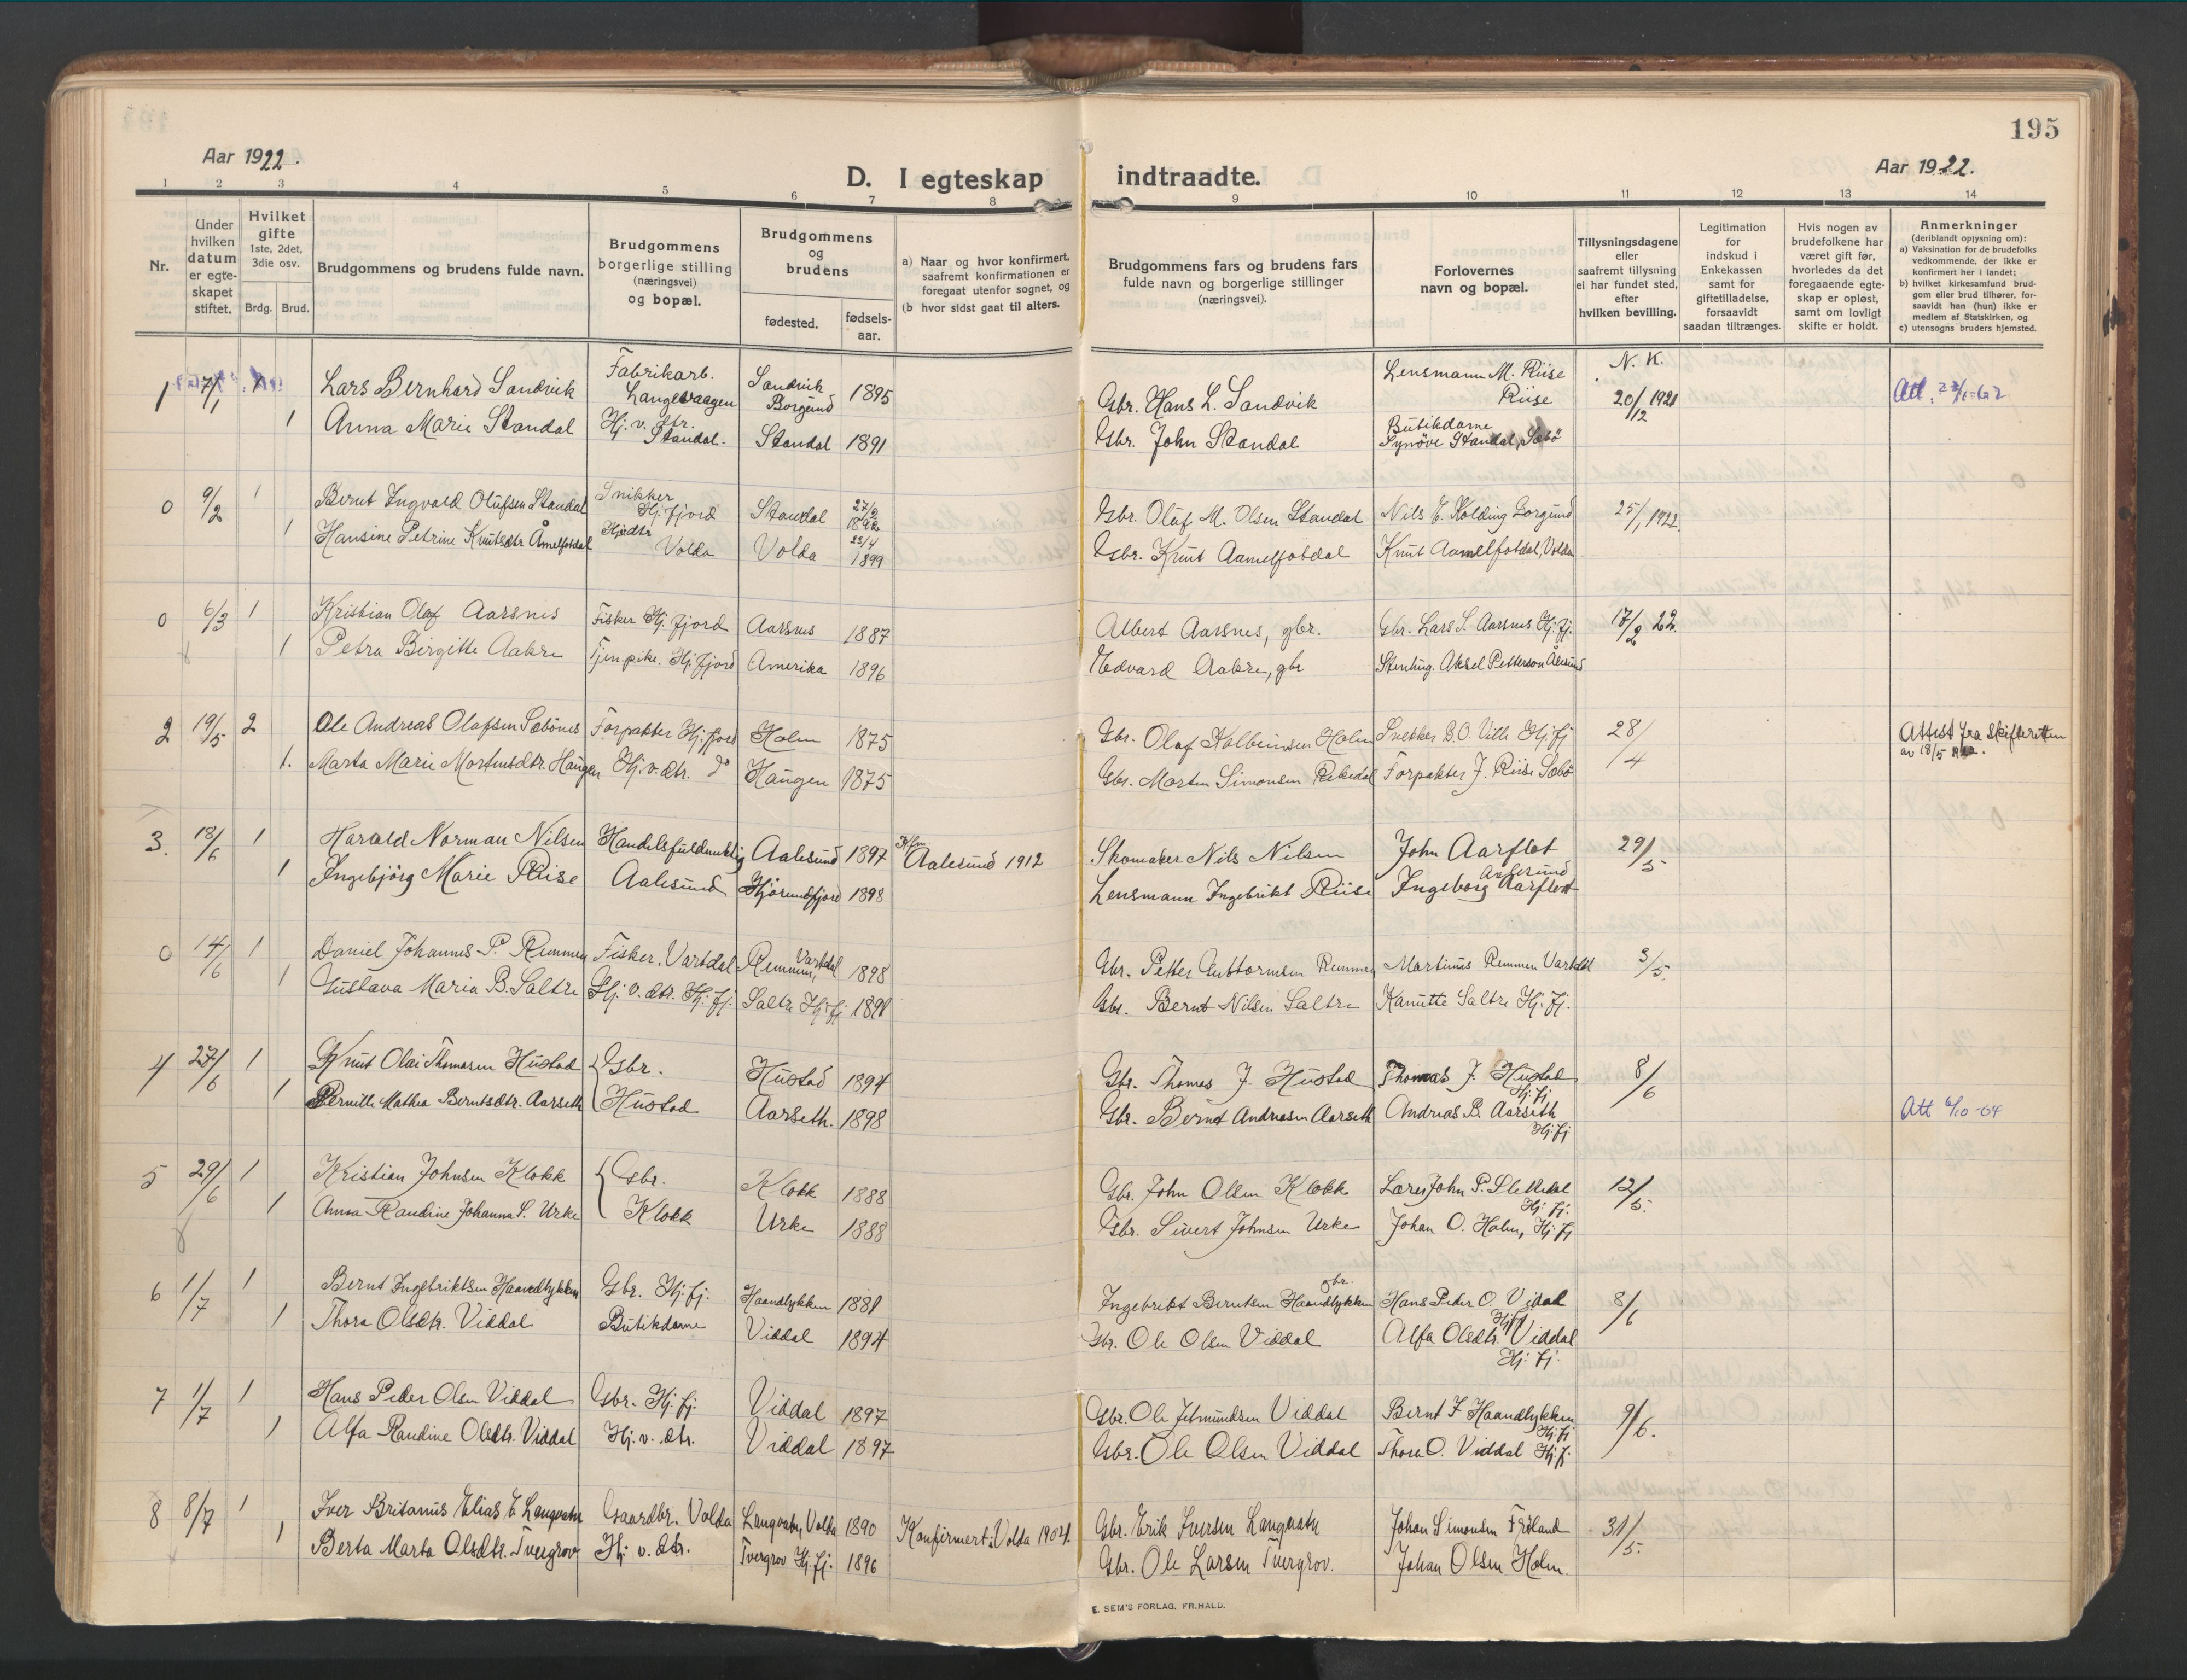 195
Aar 1922.
Aar 1922.
D. I egteskap indtraadte.
1 2 3 4 5 6 7 8 9 10 11 12 13 14
Nr.
Under
hvilken
datum
er egte-
skapet
stiftet.
Hvilket
gifte
1ste, 2det,
3die osv.
Brdg. Brud.
Brudgommens og brudens fulde navn.
Brudgommens
borgerlige stilling
(næringsvei)
og bopæl.
Brudgommens
og
brudens
fødested.
fødsels-
aar.
a) Naar og hvor konfirmert,
saafremt konfirmationen er
foregaat utenfor sognet, og
(b hvor sidst gaat til alters.
Brudgommens fars og brudens fars
fulde navn og borgerlige stillinger
(næringsvei).
Forlovernes
navn og bopæl.
Tillysningsdagene
eller
saafremt tillysning
ei har fundet sted,
efter
hvilken bevilling.
Legitimation
for
indskud i
Enkekassen
samt for
giftetilladelse,
forsaavidt
saadan tiltrænges.
Hvis nogen av
brudefolkene har
været gift før,
hvorledes da det
foregaaende egte-
skap er opløst,
samt om lovligt
skifte er holdt.
Anmerkninger
(deriblandt opjysning om):
a) Vaksination for de brudefolks
vedkommende, der ikke er
konfirmert her i landet;
b) hvilket kirkesamfund brud-
gom eller brud tilhører, for-
saavidt han (hun) ikke er
medlem af Statskirken, og
c) utensogns bruders hjemsted.
1 7/1 1 Lars Bernhard Sandvik Fabrikarb. Langevaagen Sandvik Borgund 1895 Gbr. Hans L. Sandvik Lensmann M. Riise Riise N. K. 20/12 1921 Att.
1 Anna Marie Standal Hj. v. dtr. Standal. Standal 1891 Gbr. John Standal Butikdame Synöve Standal, Sæbö
0 9/2 1 Bernt Ingvald Olufsen Standal Snikker Hj.fjord Standal 27/2 Gbr. Oluf M. Olsen Standal Nils E. Kolding Borgund 25/1 1922.
1 Hansine Petrine Knutsdtr Åmelfotdal Hj.dtr Volda Volda 22/4 1899 Gbr. Knut Aamelfotdal Knut Aamelfotdal, Volda
0 6/3 1 Kristian Olaf Aarsnes Fisker Hj.fjord Aarsnes 1887 Albert Aarsnes, gbr. Gbr. Lars S. Aarsnes Hj.fj. 17/2 22.
1 Petra Birgitte Aakre Tjen.pike. Hj.fjord Amerika 1896 Edvard Aakre, gbr Stenhug. Aksel Petterson Ålesund
2 19/5 2 Ole Andreas Olafsen Sæbönes Forpakter Hj.fjord Holm 1875 Gbr. Olaf Kolbeinsen Holm B.O. Ville Hj.fj 28/4 Attest fra Skifteretten
av 18/5
1. Marta Marie Mortensdtr. Haugen Hj.v.dtr. do Haugen 1875 Gbr. Morten Simonsen Forpakter J. Riise Sæbö
3. 18/6 1 Harald Norman Nilsen Handelsfuldmektig Aalesund 1897 Kfm Aalesund 1912 Skomaker Nils Nilsen John Aarflot Aalesund 29/5
1 Ingebjörg Marie Riise Aalesund Hjörundfjord 1898 Lensmann Ingebrikt Riise Ingeborg Aarflot
0 14/6 1 Daniel Johannes P. Remmen Fisker. Vartdal Remmen, Vartdal 1898 Gbr. Petter Guttormsen Remmen Martinus Remmen Vartdal 3/5.
1 Gustava Maria B. Saltre Hj. v. dtr. Hj. fj. Saltre Hj.fj Gbr. Bernt Nilsen Saltre Kanutte Saltre Hj. fj.
4 27/6 1 Knut Olai Thomasen Hustad Gbr. Hustad 1894 Gbr. Thomas J. Hustad Thomas J. Hustad Hj.fj 8/6
1 Pernille Mathea Berntsdtr. Aarseth Hustad Aarseth. 1898 Gbr. Bernt Andreasen Aarseth Andreas B. Aarseth Hj.fj Att 6/10-64
5 29/6 1 Kristian Johnsen Klokk Gbr. Klokk 1888 Gbr. John Olsen Klokk Lærer John P. Slettedal Hj. fj. 12/5.
1 Anna Randine Johanna S. Urke Klokk Urke 1888 Gbr. Sivert Johnsen Urke Johan O. Holm, Hj.fj
6 1/7 1 Bernt Ingebriktsen Haandlykken Gbr. Hj.fj. Haandlykken 1881 Ingebrikt Berntsen Haandlykken gbr. Hans Peder O. Vidal Hj.fj 8/6
1 Thora Olsdtr. Viddal Butikdame Viddal 1894 Gbr. Ole Olsen Viddal Alfa Olsdtr. Viddal Hj. fj.
7 1/7 1 Hans Peder Olsen Viddal Gbr. Hj. fj. Viddal 1897 Gbr. Ole Jetmundsen Viddal Bernt I Haandlykken Hj.fj 9/6.
1 Alfa Randine Olsdtr. Viddal Hj. v. dtr. Viddal 1897 Gbr. Ole Olsen Viddal Thora O. Viddal Hj.fj.
8 8/7 1 Iver Britanus Elias E. Langvatn Gaardbr. Volda Langvatn, Volda 1890 Konfirmert i Volda 1904. Gbr. Erik Iversen Langvatn Johan Simonsen 31/5.
1 Berta Marta Olsdtr. Tvergrov Hj. v. dtr. Tvergrov Hj.fj. 1896 Gbr. Ole Larsen Tvergrov. Johan Olsen Holm.
E. SEM'S FORLAG, FR.HALD.